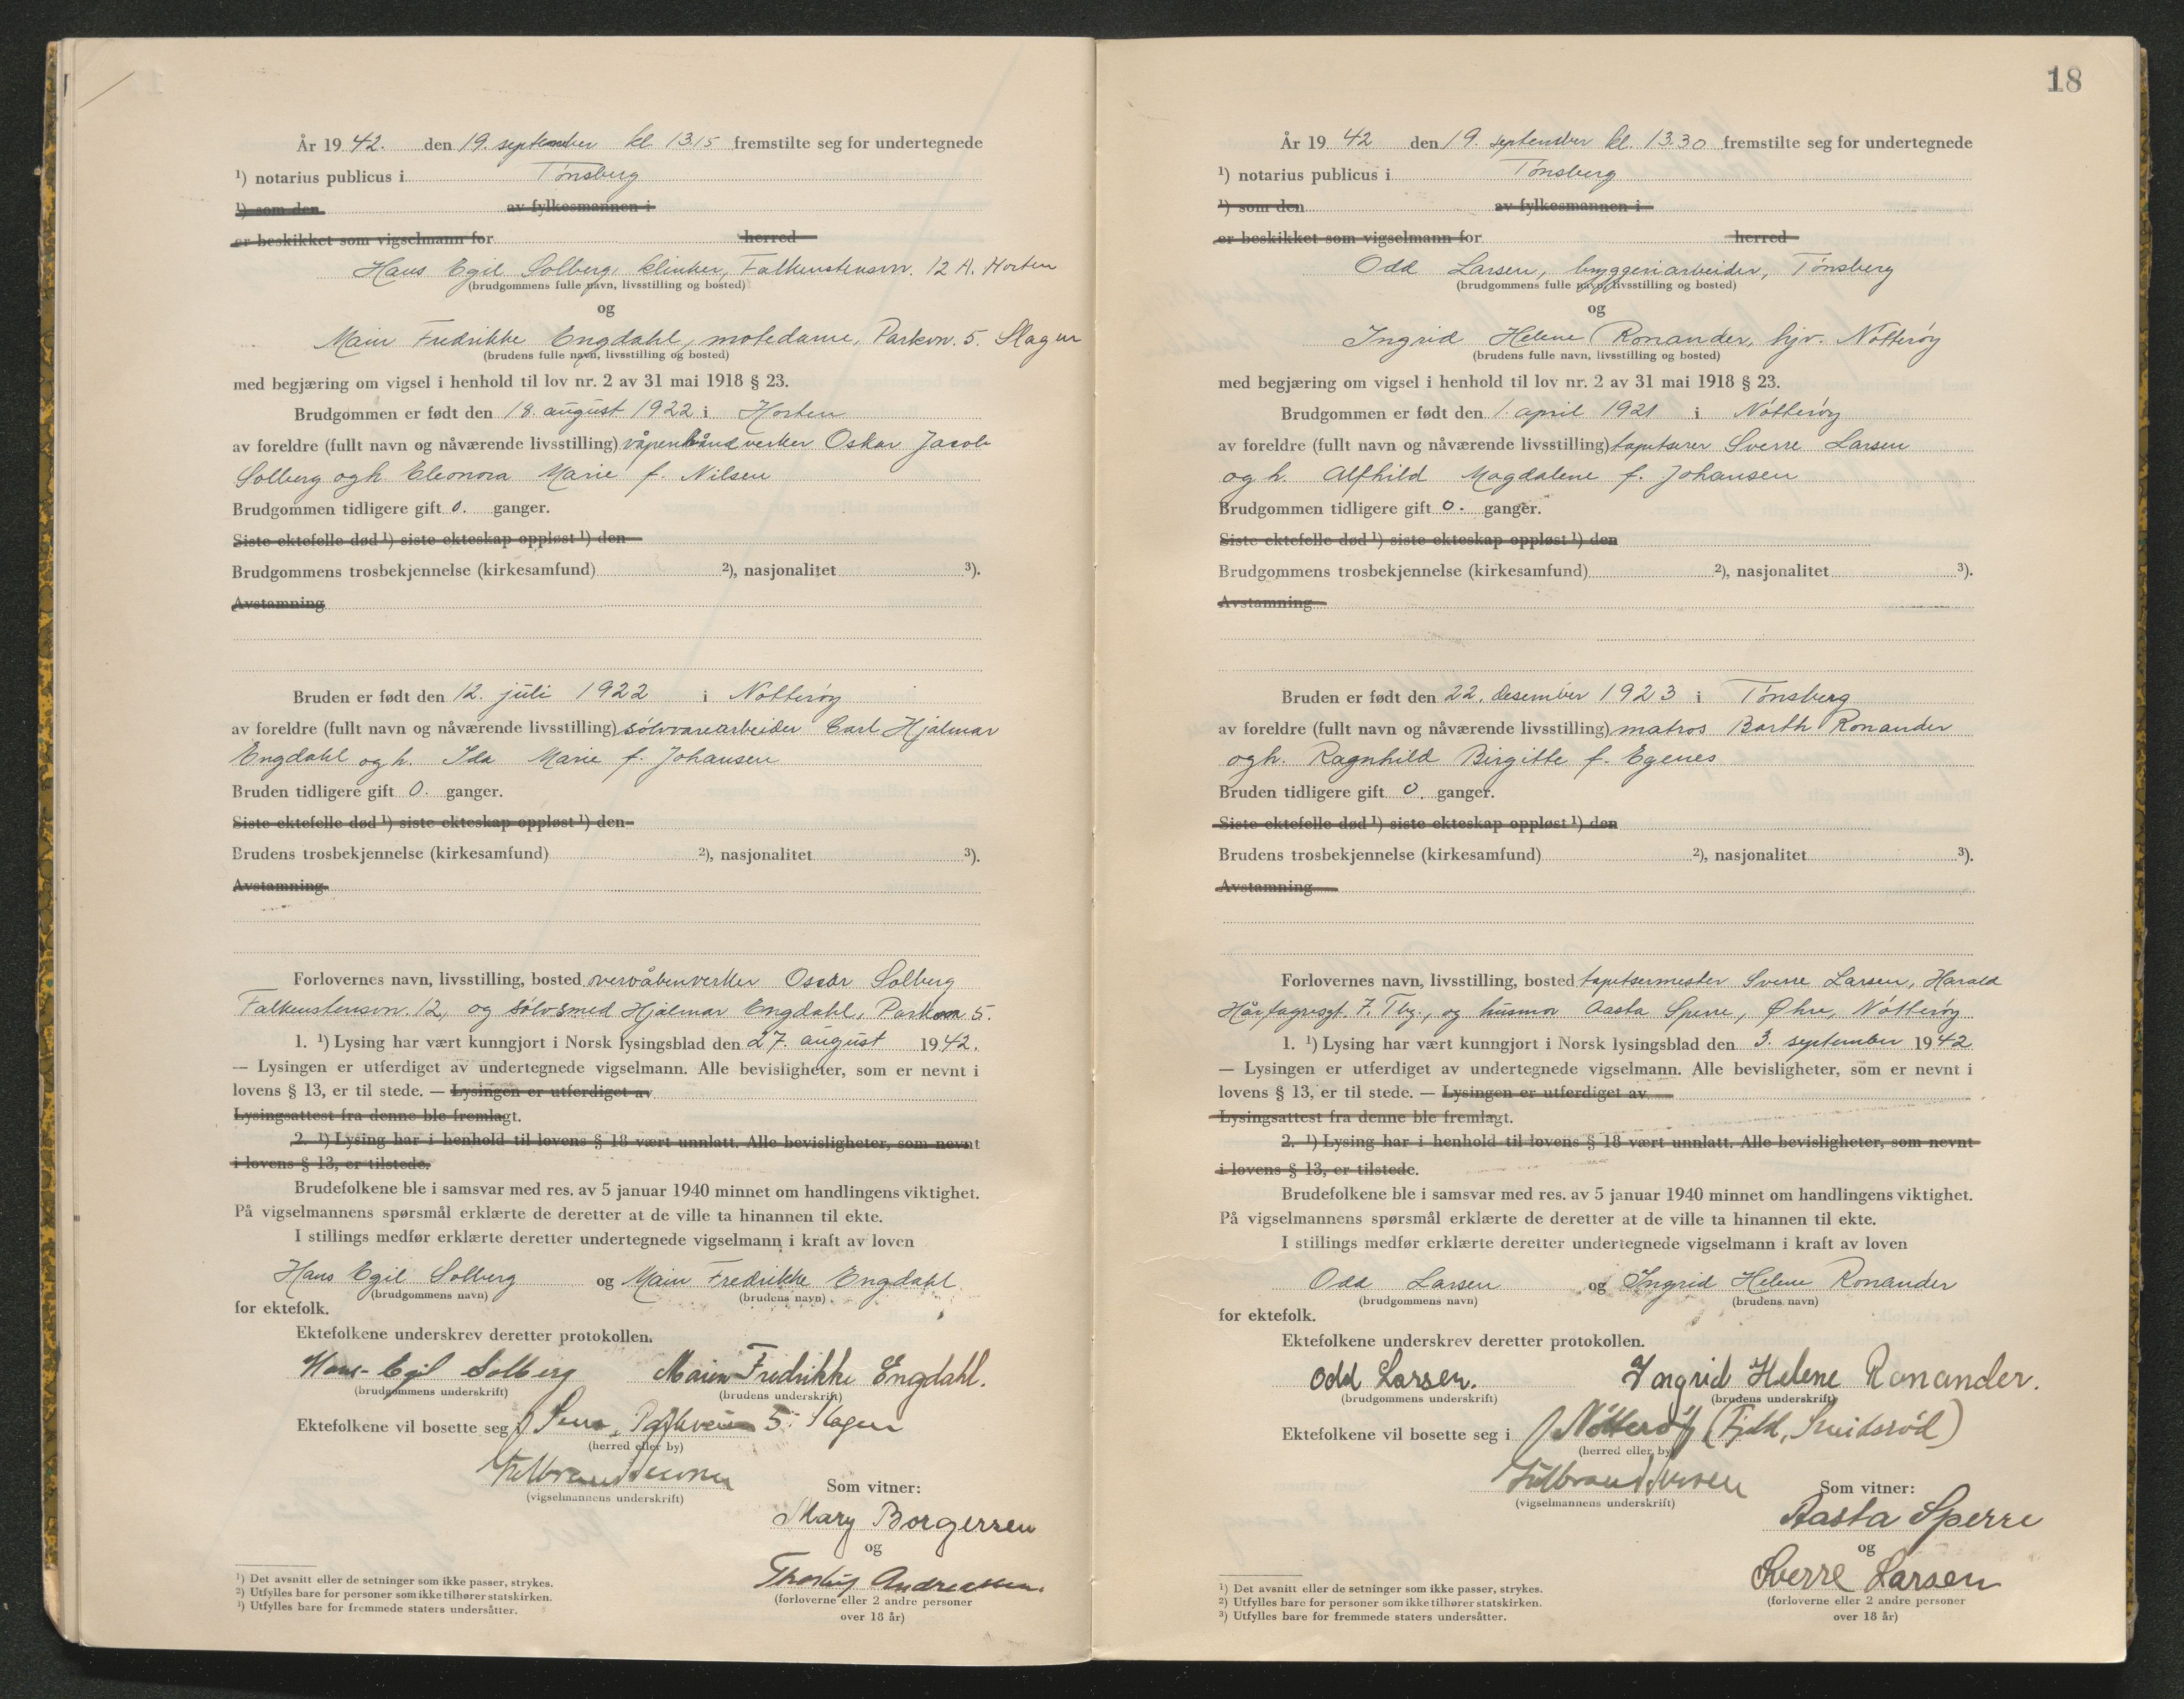 År 19 42. den 19. september kl. 13.15 fremstilte seg for undertegnede
¹) notarius publicus i Tønsberg
¹) som den av fylkesmannen i
er beskikket som vigselmann for herred
Hans Egil Solberg, klinker, Falkenstensvn. 12 A. Horten
(brudgommens fulle navn, livsstilling og bosted)
og
Main Fredrikke Engdahl, motedame, Parkvn. 5. Slagen
(brudens fulle navn, livsstilling og bosted)
med begjæring om vigsel i henhold til lov nr. 2 av 31 mai 1918 § 23.
Brudgommen er født den 18. august 1922 i Horten
av foreldre (fullt navn og nåværende livsstilling) våpenhåndverker Oskar Jacob
Solberg og h. Eleonora Marie f. Nilsen
Brudgommen tidligere gift 0. ganger.
Siste ektefelle død ¹) siste ekteskap oppløst ¹) den
Brudgommens trosbekjennelse (kirkesamfund) ²), nasjonalitet ³).
Avstamning
Bruden er født den 12. juli 1922 i Nøtterøy
av foreldre (fullt navn og nåværende livsstilling) sølvvarearbeider Carl Hjalmar
Engdahl og h. Ida Marie f. Johansen
Bruden tidligere gift 0. ganger.
Siste ektefelle død ¹) siste ekteskap oppløst ¹) den
Brudens trosbekjennelse (kirkesamfund) ²), nasjonalitet ³).
Avstamning
Forlovernes navn, livsstilling, bosted overvåbenverker Oscar Solberg
Falkenstensvn. 12, og sølvsmed Hjalmar Engdahl, Parkvn 5.
1. ¹) Lysing har vært kunngjort i Norsk lysingsblad den 27. august 1942.
— Lysingen er utferdiget av undertegnede vigselmann. Alle bevisligheter, som er nevnt i
lovens § 13, er til stede. — Lysingen er utferdiget av
Lysingsattest fra denne ble fremlagt.
2. ¹) Lysing har i henhold til lovens § 18 vært unnlatt. Alle bevisligheter, som nevnt
i lovens § 13, er tilstede.
Brudefolkene ble i samsvar med res. av 5 januar 1940 minnet om handlingens viktighet.
På vigselmannens spørsmål erklærte de deretter at de ville ta hinannen til ekte.
I stillings medfør erklærte deretter undertegnede vigselmann i kraft av loven
Hans Egil Solberg og Main Fredrikke Engdahl
(brudgommens navn) (brudens navn)
for ektefolk.
Ektefolkene underskrev deretter protokollen.
Hans-Egil Solberg Main Fredrikke Engdahl.
(brudgommens underskrift) (brudens underskrift)
Ektefolkene vil bosette seg i Sem, Parkveien 5. Slagen
(herred eller by)
(vigselmannens underskrift)
Som vitner:
Mary Borgersen
og
Andreassen.
(forloverne eller 2 andre personer
over 18 år)
¹) Det avsnitt eller de setninger som ikke passer, strykes.
²) Utfylles bare for personer som ikke tilhører statskirken.
³) Utfylles bare for fremmede staters undersåtter.
18
År 19 42 den 19. september kl. 13.30 fremstilte seg for undertegnede
¹) notarius publicus i Tønsberg
¹) som den av fylkesmannen i
er beskikket som vigselmann for herred
Odd Larsen, bryggeriarbeider, Tønsberg
(brudgommens fulle navn, livsstilling og bosted)
og
Ingrid Helene Ronander, hjv. Nøtterøy
(brudens fulle navn, livsstilling og bosted)
med begjæring om vigsel i henhold til lov nr. 2 av 31 mai 1918 § 23.
Brudgommen er født den 1. april 1921 i Nøtterøy
av foreldre (fullt navn og nåværende livsstilling) tapetserer Sverre Larsen
og h. Alfhild Magdalene f. Johansen
Brudgommen tidligere gift 0. ganger.
Siste ektefelle død ¹) siste ekteskap oppløst ¹) den
Brudgommens trosbekjennelse (kirkesamfund) ²), nasjonalitet ³).
Avstamning
Bruden er født den 22. desember 1923 i Tønsberg
av foreldre (fullt navn og nåværende livsstilling) matros Barth Ronander
og h. Ragnhild Birgitte f. Egenes
Bruden tidligere gift 0. ganger.
Siste ektefelle død ¹) siste ekteskap oppløst ¹) den
Brudens trosbekjennelse (kirkesamfund) ²), nasjonalitet ³).
Avstamning
Forlovernes navn, livsstilling, bosted tapetsermester Sverre Larsen, Harald
Hårfagresgt. 7. Tbg., og husmor Aasta Sperre, Øhre, Nøtterøy
1. ¹) Lysing har vært kunngjort i Norsk lysingsblad den 3. september 1942
— Lysingen er utferdiget av undertegnede vigselmann. Alle bevisligheter, som er nevnt i
lovens § 13, er til stede. — Lysingen er utferdiget av
Lysingsattest fra denne ble fremlagt.
2. ¹) Lysing har i henhold til lovens § 18 vært unnlatt. Alle bevisligheter, som nevnt
i lovens § 13, er tilstede.
Brudefolkene ble i samsvar med res. av 5 januar 1940 minnet om handlingens viktighet.
På vigselmannens spørsmål erklærte de deretter at de ville ta hinannen til ekte.
I stillings medfør erklærte deretter undertegnede vigselmann i kraft av loven
Odd Larsen og Ingrid Helene Ronander
(brudgommens navn) (brudens navn)
for ektefolk.
Ektefolkene underskrev deretter protokollen.
Odd Larsen. Ingrid Helene Ronander.
(brudgommens underskrift) (brudens underskrift)
Ektefolkene vil bosette seg i Nøtterøy (Fjeld, Smidsrød)
(herred eller by)
(vigselmannens underskrift)
Som vitner:
Aasta Sperre
og
Sverre Larsen
(forloverne eller 2 andre personer
over 18 år)
¹) Det avsnitt eller de setninger som ikke passer, strykes.
²) Utfylles bare for personer som ikke tilhører statskirken.
³) Utfylles bare for fremmede staters undersåtter.